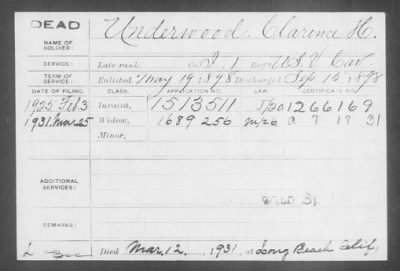 DEAD
NAME OF SOLDIER: Underwood, Clarence H.
SERVICE: Late rank, Co. I, 1 Reg't U.S.V. Cav.
TERM OF SERVICE: Enlisted May 19 1898 Discharged Sep 15, 1898
DATE OF FILING. CLASS. APPLICATION NO. LAW. CERTIFICATE NO.
1925 Feb 3 Invalid, 1513511 1266169
1931. Mar. 25 Widow, 1689256 m/26 a 7 17 31
Minor,
ADDITIONAL SERVICES:
REMARKS:
Died Mar. 12, 1931, at Long Beach Calif.